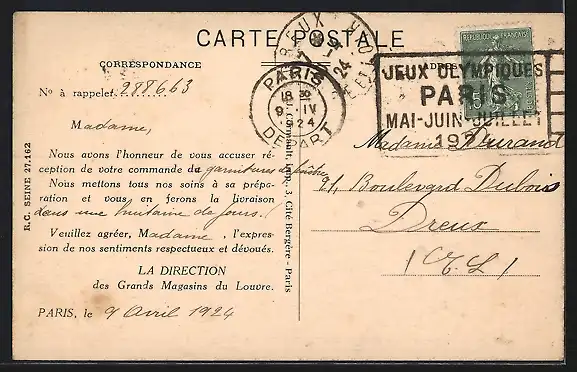 CARTE POSTALE
CORRESPONDANCE
Nº à rappeler 288663
Madame,
Nous avons l'honneur de vous accuser ré-
ception de votre commande du garnitures de
Nous mettons tous nos soins à sa prépa-
ration et vous en ferons la livraison
dans une huitaine de jours.
Veuillez agréer, Madame, l'expres-
sion de nos sentiments respectueux et dévoués.
LA DIRECTION
des Grands Magasins du Louvre.
PARIS, le 9 Avril 1924
R.C. SEINE 27.162
Imp., 3, Cité Bergère - Paris
DREUX
24
PARIS
18 30
9 IV
24
DEPART
REPUBLIQUE FRANÇAISE
15
ADRESSE
JEUX OLYMPIQUES
PARIS
MAI-JUIN-JUILLET
1924
Madame Durand
21, Boulevard Dubois
Dreux
(E. L)